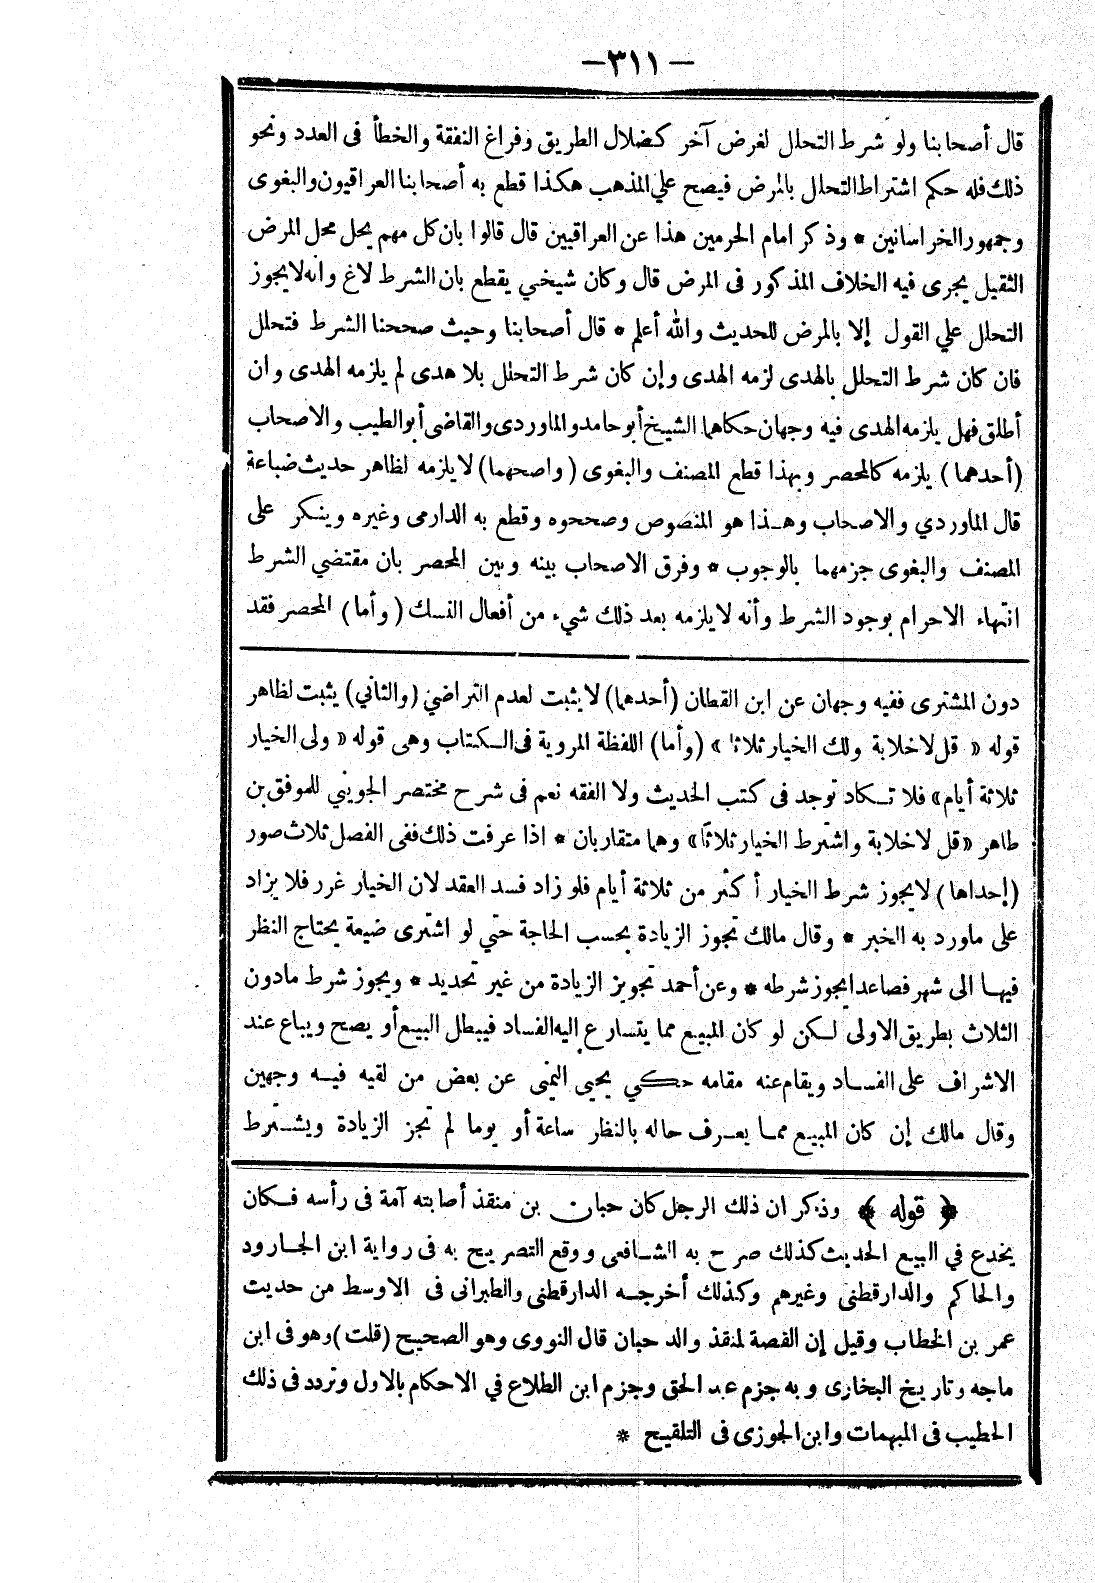 — ٣١١ —
قال أصحابنا ولو شرط التحلل لغرض آخر كضلال الطريق وفراغ النفقة والخطأ فى العدد ونحو
ذلك فله حكم اشتراط التحلل بالمرض فيصح علي المذهب هكذا قطع به أصحابنا العراقيون والبغوى
وجمهور الخراسانين * وذكر امام الحرمين هذا عن العراقيين قال قالوا بان كل مهم يحل محل المرض
الثقيل يجرى فيه الخلاف المذكور فى المرض قال وكان شيخي يقطع بان الشرط لاغ وانه لا يجوز
التحلل علي القول إلا بالمرض للحديث والله أعلم * قال أصحابنا وحيث صححنا الشرط فتحلل
فان كان شرط التحلل بالهدى لزمه الهدى وإن كان شرط التحلل بلا هدى لم يلزمه الهدى وان
أطلق فهل يلزمه الهدى فيه وجهان حكاهما الشيخ أبو حامد والماوردى والقاضى أبو الطيب والاصحاب
(أحدهما) يلزمه كالمحصر وبهذا قطع المصنف والبغوى (واصحهما) لا يلزمه لظاهر حديث ضباعة
قال الماوردي والاصحاب وهـذا هو المنصوص وصححوه وقطع به الدارمى وغيره وينكر على
المصنف والبغوى جزمهما بالوجوب * وفرق الاصحاب بينه وبين المحصر بان مقتضي الشرط
انتهاء الاحرام بوجود الشرط وأنه لا يلزمه بعد ذلك شيء من أفعال النسك (وأما) المحصر فقد
دون المشترى ففيه وجهان عن ابن القطان (أحدهما) لا يثبت لعدم التراضي (والثاني) يثبت لظاهر
قوله « قل لا خلابة ولك الخيار ثلاثا » (وأما) اللفظة المروية فى الـكتاب وهى قوله « ولى الخيار
ثلاثة أيام» فلا تـكاد توجد فى كتب الحديث ولا الفقه نعم فى شرح مختصر الجويني للموفق بن
طاهر «قل لا خلابة واشترط الخيار ثلاثًا» وهما متقاربان * اذا عرفت ذلك ففى الفصل ثلاث صور
(إحداها) لا يجوز شرط الخيار أكثر من ثلاثة أيام فلو زاد فسد العقد لان الخيار غرر فلا يزاد
على ماورد به الخبر * وقال مالك تجوز الزيادة بحسب الحاجة حتي لو اشترى ضيعة يحتاج النظر
فيهـا الى شهر فصاعدا يجوز شرطه * وعن أحمد تجويز الزيادة من غير تحديد * ويجوز شرط مادون
الثلاث بطريق الاولى لـكن لو كان المبيع مما يتسارع اليه الفساد فيبطل البيع أو يصح ويباع عند
الاشراف على الفسـاد ويقام عنه مقامه حكي يحيى اليمنى عن بعض من لقيه فيـه وجهين
وقال مالك إن كان المبيع ممـا يعـرف حاله بالنظر ساعة أو يوما لم تجز الزيادة ويشـترط
﴿ قوله ﴾ وذكر ان ذلك الرجل كان حبان بن منقذ أصابته آمة فى رأسه فـكان
يخدع في البيع الحديث كذلك صرح به الشـافعى ووقع التصريح به فى رواية ابن الجـارود
والحاكم والدارقطنى وغيرهم وكذلك أخرجـه الدارقطنى والطبرانى فى الاوسط من حديث
عمر بن الخطاب وقيل إن القصة لمنقذ والد حبان قال النووى وهو الصحيح (قلت) وهو فى ابن
ماجه وتاريخ البخارى وبه جزم عبد الحق وجزم ابن الطلاع في الاحكام بالاول وتردد فى ذلك
الخطيب فى المبهمات وابن الجوزى فى التلقيح *